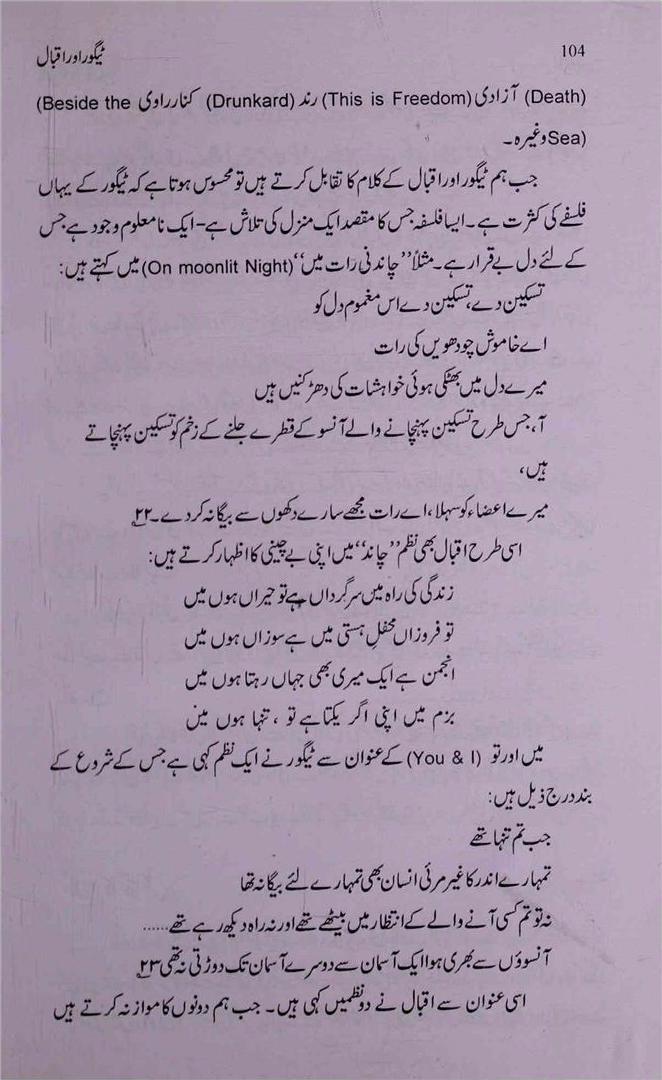 104
ٹیگور اور اقبال
(Death) آزادی (This is Freedom) رند (Drunkard) کنار راوی (Beside the
Sea) وغیرہ۔
جب ہم ٹیگور اور اقبال کے کلام کا تقابل کرتے ہیں تو محسوس ہوتا ہے کہ ٹیگور کے یہاں
فلسفے کی کثرت ہے۔ ایسا فلسفہ جس کا مقصد ایک منزل کی تلاش ہے- ایک نا معلوم وجود ہے جس
کے لئے دل بے قرار ہے۔ مثلاً ’’چاندنی رات میں‘‘ (On moonlit Night) میں کہتے ہیں:
تسکین دے، تسکین دے اس مغموم دل کو
اے خاموش چودھویں کی رات
میرے دل میں بھٹکی ہوئی خواہشات کی دھڑکنیں ہیں
آ، جس طرح تسکین پہنچانے والے آنسو کے قطرے جلنے کے زخم کو تسکین پہنچاتے
ہیں،
میرے اعضاء کو سہلا، اے رات مجھے سارے دکھوں سے بیگانہ کر دے۔ ۲۲
اسی طرح اقبال بھی نظم ’’چاند‘‘ میں اپنی بے چینی کا اظہار کرتے ہیں:
زندگی کی راہ میں سرگرداں ہے تو حیراں ہوں میں
تو فروزاں محفلِ ہستی میں ہے سوزاں ہوں میں
انجمن ہے ایک میری بھی جہاں رہتا ہوں میں
بزم میں اپنی اگر یکتا ہے تو ، تنہا ہوں میں
میں اور تو (You & I) کے عنوان سے ٹیگور نے ایک نظم کہی ہے جس کے شروع کے
بند درج ذیل ہیں:
جب تم تنہا تھے
تمہارے اندر کا غیر مرئی انسان بھی تمہارے لئے بیگانہ تھا
نہ تو تم کسی آنے والے کے انتظار میں بیٹھے تھے اور نہ راہ دیکھ رہے تھے......
آنسوؤں سے بھری ہوا ایک آسمان سے دوسرے آسمان تک دوڑتی نہ تھی ۲۳
اسی عنوان سے اقبال نے دو نظمیں کہی ہیں۔ جب ہم دونوں کا موازنہ کرتے ہیں